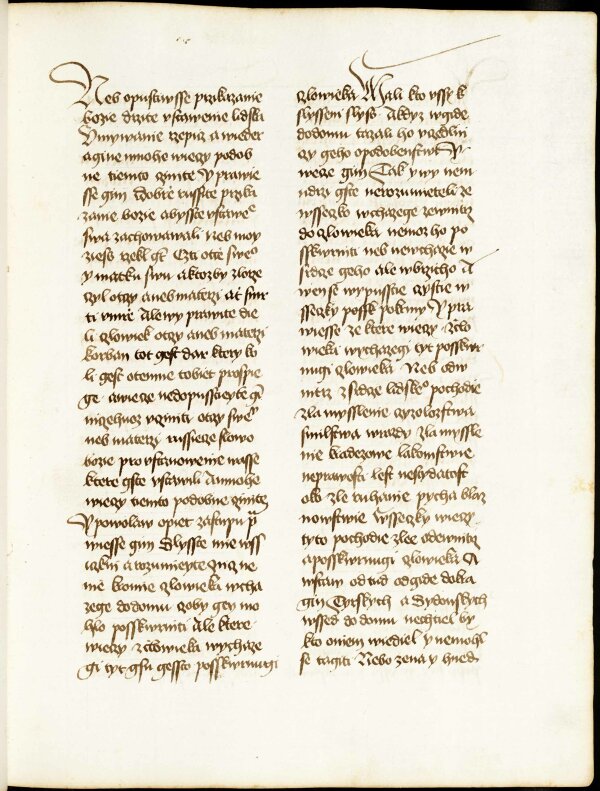 Neb opustiwsse przikazanie
bozie drzite vstawenie lidska
Vmywanie czepuz a wieder
a gine mnohe wieczy podob
ne tiemto czinite Y prawie
sse gim Dobrze russite przika
zanie bozie abysste vstawe
swa zachowawali Neb moy
ziess rzekl gt Czti otcze swe
y matku swu a ktozby zlorze
czyl otczy aneb materzi at smr
ti vmrze Alewy prawite die
li czlowiek otczy aneb materzi
korban tot gest dar ktery ko
li gest otemne tobiet prospie
ge a wiecze nedopusstiegte ge
niczehuoz vcziniti otczy swe
neb materzi russiecze slowo
bozie pro vstanowenie wasse
ktere gste vstawili A mnohe
wieczy tiemto podobne czinite
Y powolaw opiet zastupu p
wiesse gim Slysste mie wss
iczkni a rozumieyte Nicz ne
nie kromie czlowieka wcha
zege do domu czoby gey mo
hlo posskwrniti Ale ktere
wieczy z czlowieka wychaze
gi tyt gsu gessto posskwrnugi
czlowieka Mali kto vssy k
slyssem slyss A kdyz wgide
do domu tazali ho vczedlni
czy geho o podobenstwi Y
wecze gim Tak y wy nem
udrzi gste nerozumeteli ze
wsseczko wchazege zewnitrz
do czlowieka nemoz ho po
sskwrniti neb newchazie w
srdcze geho ale w brzicho A
wen se wypusstie czystie w
sseczky possk pokrmy Y pra
wiesse ze ktere wieczy z czlo
wieka wychazegi tyt posskwr
nugi czlowieka Neb odw
nitrz z srdcze lidske pochodie
zla mysslenie czyzolozstwa
smilstwa wrazdy zla myssle
nie kradezowe lakomstwie
neprawosti lest nestydatost
oko zle ruhanie pycha blaz
nowstwie Wsseczky wieczy
tyto pochodie zlee odewnitrz
a posskwrnugi czlowieka A
wstaw od tud odgide do kra
gin Tyrskych a Sydonskych
wssed do domu nechtiel by
kto oniem wiediel y nemohl
se tagiti Nebo zena y hned